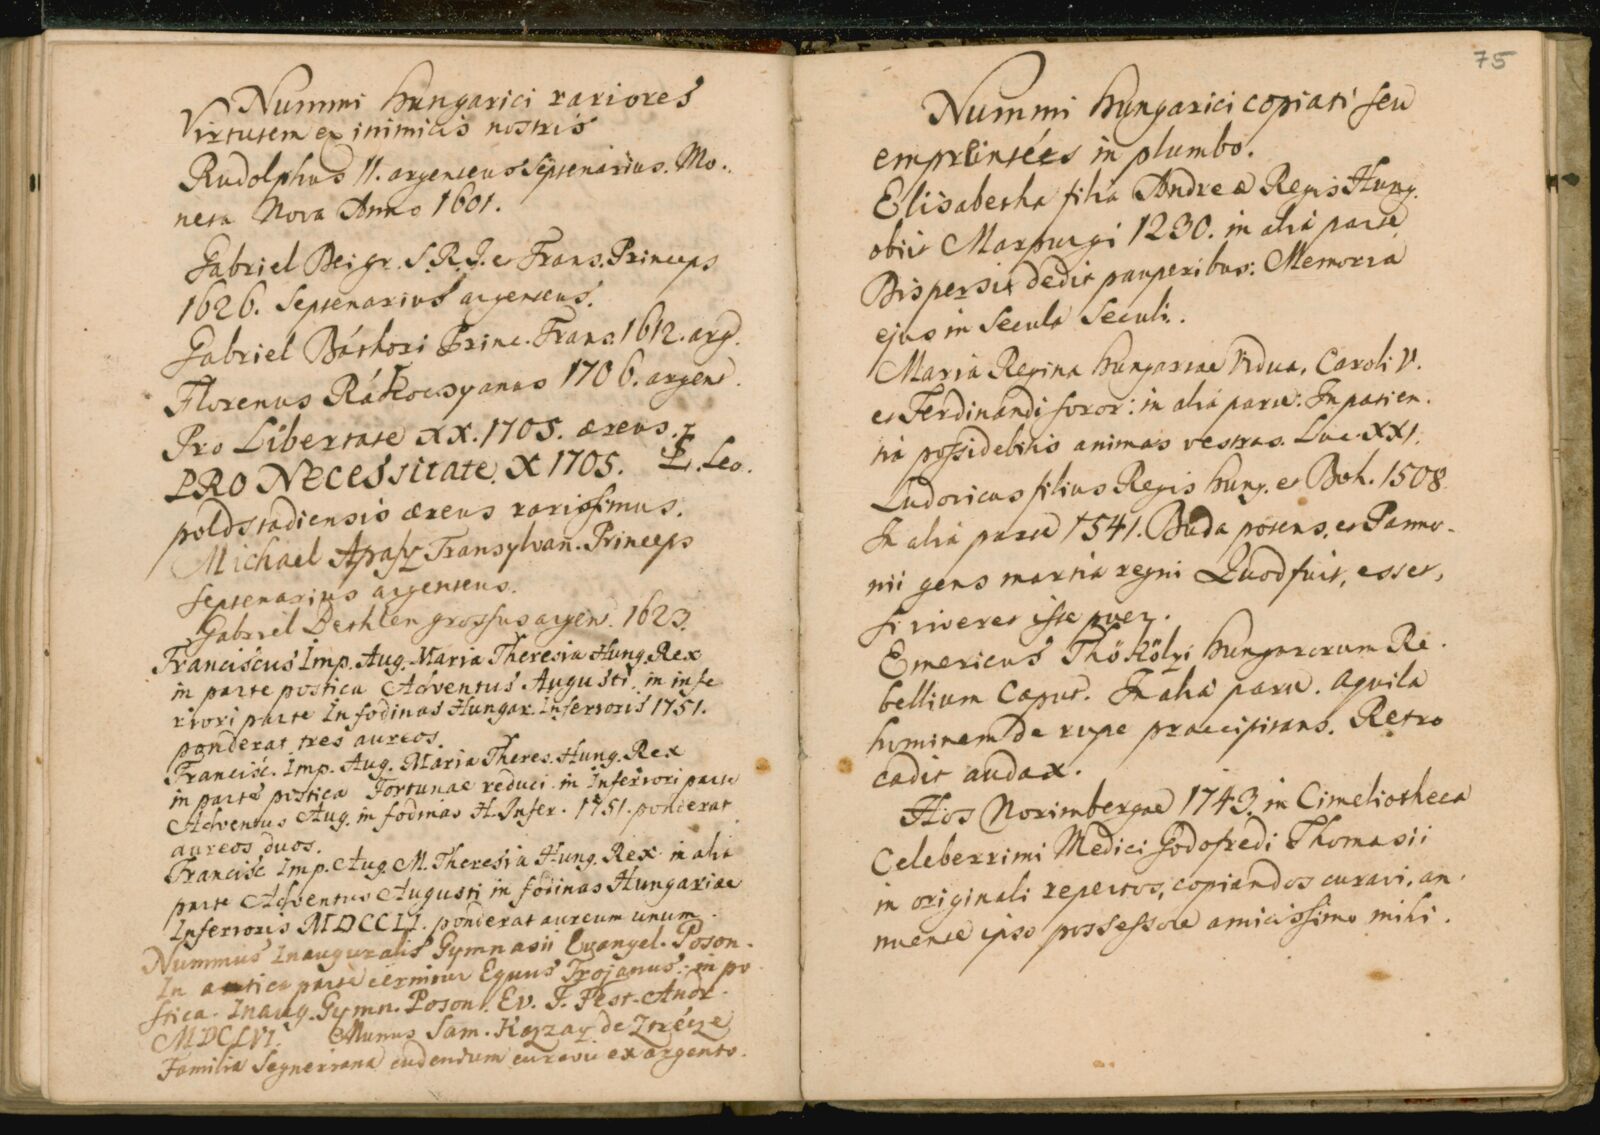 Nummi hungarici rariores
Virtutem ex inimicis nostris
Rudolphus II. argenteus Septenarius. Mo-
neta Nova Anno 1601.
Gabriel Bei gr. S. R. I. et Trans. Princeps
1626. Septenarius argenteus.
Gabriel Báthori Princ. Trans. 1612. arg.
Florenus Rákoczyanus 1706. argent.
Pro Libertate XX. 1705. æreus.
PRO NECESSITATE. X 1705. Leo-
poldstadiensis æreus rarissimus.
Michael Apafy Transylvan. Princeps
septenarius argenteus.
Gabriel Bethlen grossus argent. 1623.
Franciscus Imp. Aug. Maria Theresia Hung. Rex
in parte postica Adventus Augusti in infe
riori parte In fodinas Hungar. Inferioris 1751.
ponderat tres aureos.
Francisc. Imp. Aug. Maria Theres. Hung. Rex
in parte postica Fortunae reduci in Inferiori parte
Adventus Aug. in fodinas H. Infer. 1751. ponderat
aureos duos.
Francisc Imp. Aug. M. Theresia Hung. Rex in alia
parte Adventus Augusti in fodinas Hungariae
Inferioris MDCCLI. ponderat aureum unum.
Nummus Inauguralis Gymnasii Evangel. Poson.
In antica parte cernitur Equus Trojanus: in po
stica. Inaug. Gymn. Poson. Ev. F. Fest. Andr.
MDCLVI. Munus Sam. Kajzay de
Familia Segneriana cudendum curavit ex argento.
75
Nummi hungarici copiati seu
emprEintées in plumbo.
Elisabetha filia Andreæ Regis Hung.
obiit Marpurgi 1230. in aliâ parte
Dispersit dedit pauperibus: Memoria
ejus in Secula Seculi.
Maria Regina hungariae Vidua, Caroli V.
et Ferdinandi soror: in aliâ parte: In patien-
tiâ possidebitis animas vestras. Luc. XXI.
Ludovicus filius Regis hung. et Boh. 1508
In aliâ parte 1541. Buda potens, et Panno-
nii gens martia regni Quod fuit, esset,
si viveret iste puer.
Emericus Thököly hungarorum Re-
bellium Caput. In aliâ parte. aquila
hominem de rupe praecipitans. Retro
cadit audax.
Hos Norimbergae 1743. in Cimeliotheca
Celeberrimi Medici Godofredi Thomasii
in originali repertos, copiandos curavi, an-
nuente ipso possessore amicissimo mihi.